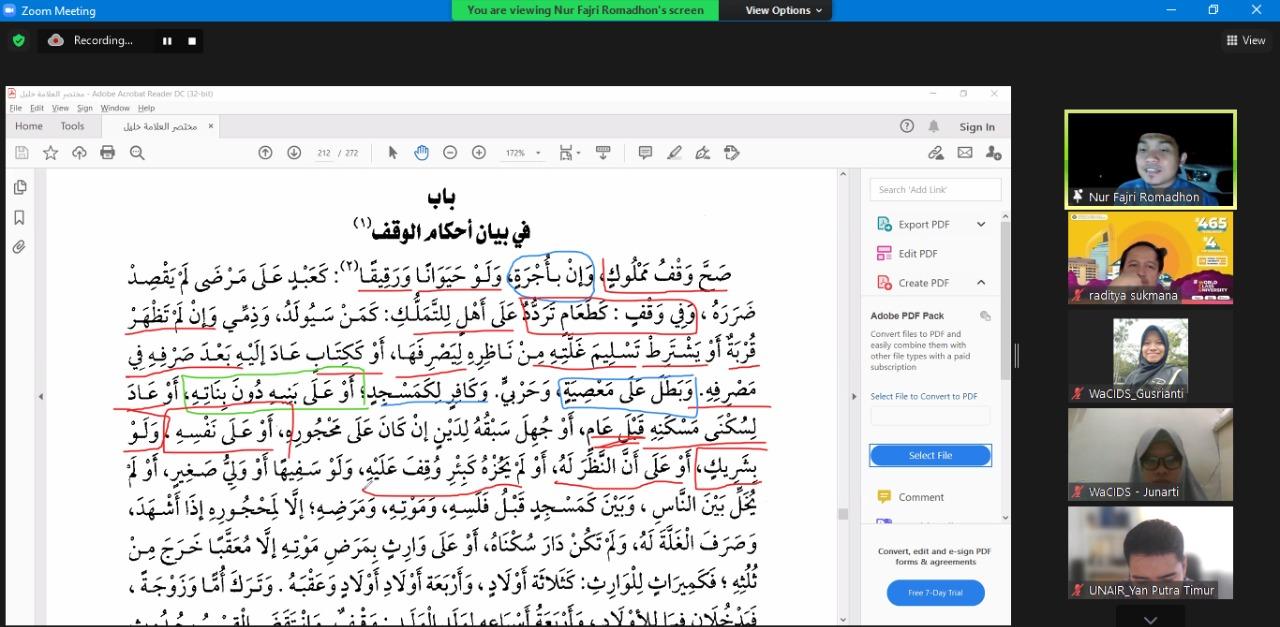 Zoom Meeting
You are viewing Nur Fajri Romadhon's screen
View Options
Recording...
View
مختصر العلامة خليل - Adobe Acrobat Reader DC (32-bit)
File Edit View Sign Window Help
Home Tools مختصر العلامة خليل ×
Sign In
212 / 272
172%
باب
في بيان أحكام الوقف(١)
صَحَّ وَقْفُ مَمْلُوكٍ، وَإِنْ بِأُجْرَةٍ، وَلَوْ حَيَوَانًا وَرَقِيقًا(٢): كَعَبْدٍ عَلَى مَرْضَى لَمْ يَقْصِدْ
ضَرَرَهُ، وَفِي وَقْفِ: كَطَعَامٍ تَرَدُّدٌ عَلَى أَهْلِ لِلتَّمَلُّكِ: كَمَنْ سَيُولَدُ، وَذِمِّي وَإِنْ لَمْ تَظْهَرْ
قُرْبَةٌ أَوْ يَشْتَرِطْ تَسْلِيمَ غَلَّتِهِ مِنْ نَاظِرِهِ لِيَصْرِفَهَا، أَوْ كَكِتَابٍ عَادَ إِلَيْهِ بَعْدَ صَرْفِهِ فِي
مَصْرِفِهِ. وَبَطَلَ عَلَى مَعْصِيَةٍ، وَحَرْبِيٍّ. وَكَافِرٍ لِكَمَسْجِدٍ؛ أَوْ عَلَى بَنِيهِ دُونَ بَنَاتِهِ، أَوْ عَادَ
لِسُكْنَى مَسْكَنِهِ قَبْلَ عَامٍ، أَوْ جُهِلَ سَبْقُهُ لِدَيْنٍ إِنْ كَانَ عَلَى مَحْجُورِهِ، أَوْ عَلَى نَفْسِهِ، وَلَوْ
بِشَرِيكٍ، أَوْ عَلَى أَنَّ النَّظَرَ لَهُ، أَوْ لَمْ يَحُزْهُ كَبِيرٌ وُقِفَ عَلَيْهِ، وَلَوْ سَفِيهًا أَوْ وَلِيُّ صَغِيرٍ، أَوْ لَمْ
يُخَلِّ بَيْنَ النَّاسِ، وَبَيْنَ كَمَسْجِدٍ قَبْلَ فَلَسِهِ، وَمَوْتِهِ، وَمَرَضِهِ؛ إِلَّا لِمَحْجُورِهِ إِذَا أَشْهَدَ،
وَصَرَفَ الْغَلَّةَ لَهُ، وَلَمْ تَكُنْ دَارَ سُكْنَاهُ، أَوْ عَلَى وَارِثٍ بِمَرَضِ مَوْتِهِ إِلَّا مُعَقَّبًا خَرَجَ مِنْ
ثُلُثِهِ؛ فَكَمِيرَاثٍ لِلْوَارِثِ: كَثَلَاثَةِ أَوْلَادٍ، وَأَرْبَعَةِ أَوْلَادِ أَوْلَادٍ وَعَقْبَهُ. وَتَرَكَ أُمًّا وَزَوْجَةً،
Search 'Add Link'
Export PDF
Edit PDF
Create PDF
Adobe PDF Pack
Convert files to PDF and
easily combine them with
other file types with a paid
subscription
Select File to Convert to PDF
Select File
Comment
Convert, edit and e-sign PDF
forms & agreements
Free 7-Day Trial
Nur Fajri Romadhon
465
4
WORLD CLASS UNIVERSITY
raditya sukmana
WaCIDS_Gusrianti
WaCIDS - Junarti
UNAIR_Yan Putra Timur